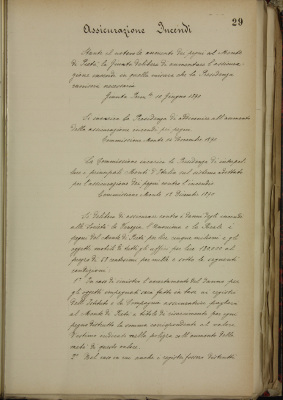 29
Assicurazione Incendi
Stante il notevole aumento dei pegni al Monte
di Pietà, la Giunta delibera di aumentare l'assicura-
zione incendi in quella misura che la Presidenza
necessario
Giunta 10 Giugno 1890
Si incarica la Presidenza di all'aumento
della assicurazione incendi pei pegni.
Commissione Monte 10 Dicembre 1891
La Commissione incarica la Presidenza di interpel-
lare i principali Monti d'Italia sul sistema adottato
per l'assicurazione dei pegni contro l'incendio
Commissione Monte 17 Dicembre 1891
Si delibera di assicurare contro i danni degli incendi
alle Società la Venezia, l'Anonima e la Reale i
pegni del Monte di Pietà per due milioni e gli
oggetti mobili di tutti gli uffici per lire
prezzo di centesimi per mille e sotto le seguenti
condizioni
1° In caso di sinistro l'accertamento del danno per
gli oggetti impegnati sarà fatto in base ai registri
dell'Istituto e le Compagnie assicuratrici pagheranno
al Monte di Pietà a titolo di risarcimento per ogni
pegno distrutto la somma corrispondente al valore
di stima indicato nella polizza coll'aumento della
metà di questo valore.
2° Nel caso in cui anche i registri fossero distrutti